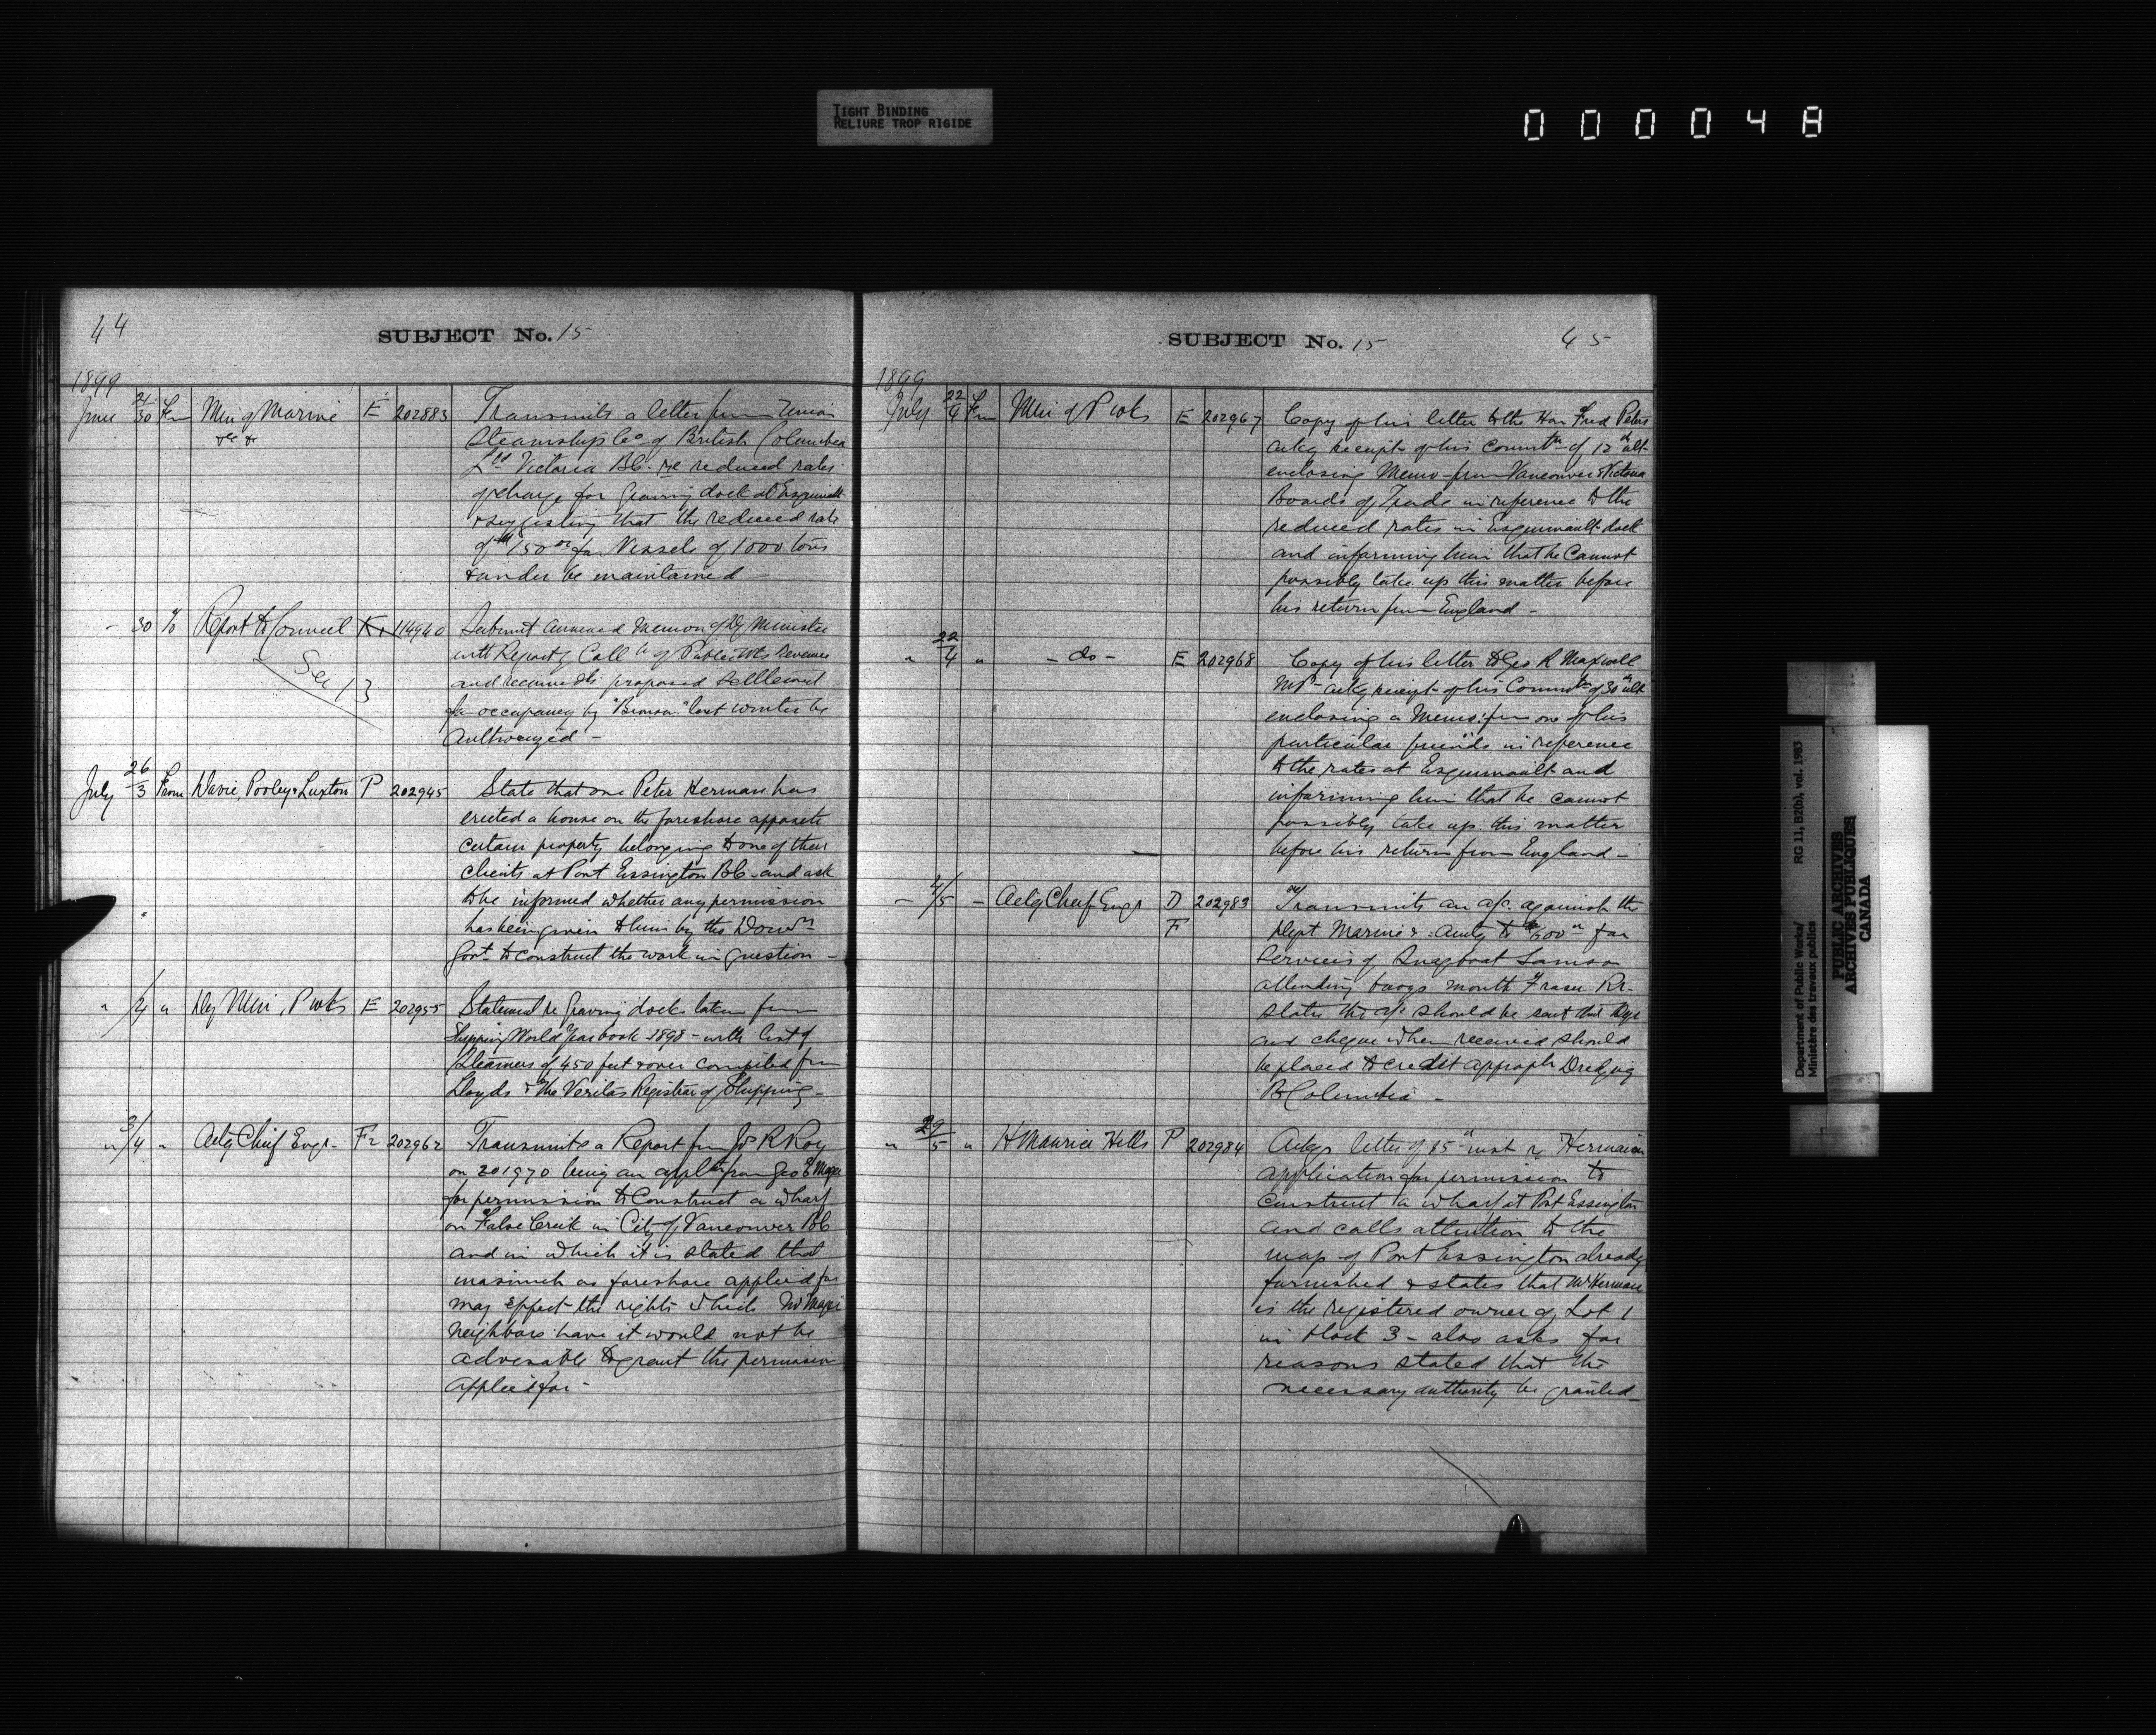 TIGHT BINDING
RELIURE TROP RIGIDE
000048
44
SUBJECT No. 15
1899
June 21/30 Fm Min of Marine E 202883 Transmits a letter from Union
&c &c Steamships Co of British Columbia
Ltd Victoria BC - re reduced rates
of charge for Graving dock at Esquimalt
& suggesting that the reduced rate
of $150 00 for Vessels of 1000 tons
& under be maintained
- 30 % Report to Council 114940 Submit annexed Memon of Dy Minister
See 13 with Report of Coll of Public Wks Revenue
and recommends proposed settlement
for occupancy by "Bruno" last winter be
Authorized -
July 26/3 From Davie, Pooley & Luxton P 202945 State that one Peter Herman has
erected a house on the foreshore opposite
certain property belonging to one of their
clients at Port Essington BC - and ask
to be informed whether any permission
has been given to him by the Domn
Govt to construct the work in question -
" /4 " Dy Min, P Wks E 202955 Statement re Graving docks taken from
Shipping World Year book 1898 - with list of
Steamers of 450 feet & over compiled from
Lloyds & the Veritas Registrar of Shipping -
" 3/4 " Actg Chief Engr - Fr 202962 Transmits a Report from J R Roy
on 201970 being an appltn from Geo E
for permission to Construct a wharf
on False Creek in City of Vancouver BC
and in which it is stated that
inasmuch as foreshore applied for
may effect the rights which Mr
neighbors have it would not be
advisable to grant the permission
applied for -
SUBJECT No. 15
45
1899
July 22/4 Fm Min of P Wks E 202967 Copy of his letter to the Hon Fred Peters
ackg receipt of his Commtn of 12th ult -
enclosing Memo from Vancouver & Victoria
Boards of Trade in reference to the
reduced rates in Esquimault dock
and informing him that he Cannot
possibly take up this matter before
his return from England -
" 22/4 " - do - E 202968 Copy of his letter to Geo R Maxwell
MP - ackg receipt of his Commtn of 30th ult
enclosing a Memo: from one of his
particular friends in reference
to the rates at Esquimault and
informing him that he cannot
possibly take up this matter
before his return from England -
- 4/5 - Actg Chief Engr D 202983 Transmits an a/c. against the
F Dept Marine & : amtg to $600 00 for
Services of Snagboat Samson
attending buoys mouth Fraser Rr -
states the a/c should be sent that Dept
and cheque when received should
be placed to credit appropn Dredging
B Columbia -
" 29/5 " H Maurice Hills P 202984 Ackgs letter of 15th inst re Hermann
application for permission to
Construct a wharf at Port Essington
and calls attention to the
map of Port Essington already
furnished & states that Mr Herman
is the registered owner of Lot 1
in block 3 - also asks for
reasons stated that the
necessary authority be granted -
Department of Public Works/
Ministère des travaux publics
RG 11, B2(b), vol. 1983
PUBLIC ARCHIVES
ARCHIVES PUBLIQUES
CANADA